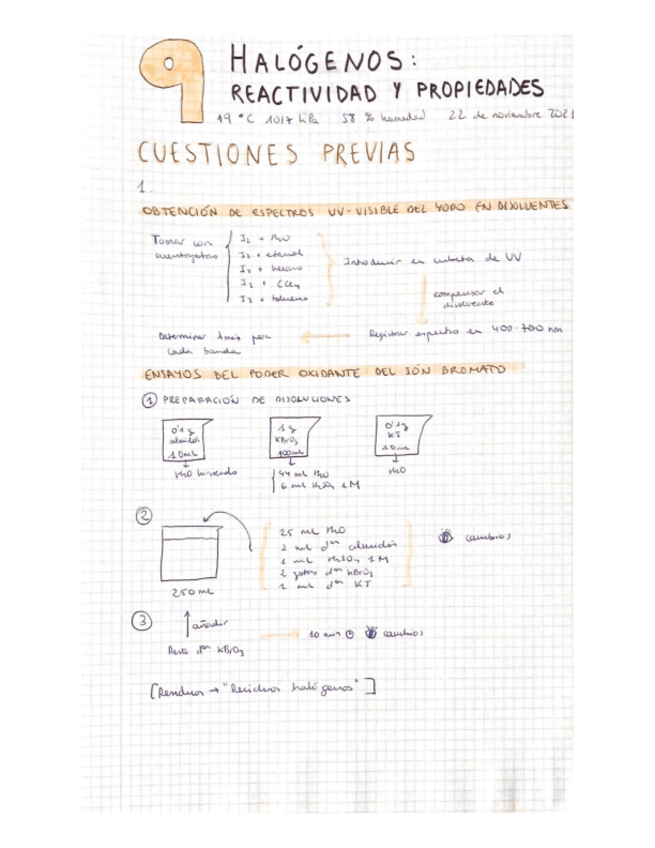 9 HALÓGENOS:
REACTIVIDAD Y PROPIEDADES
19 °C 1017 hPa 58 % humedad 22 de noviembre 2021
CUESTIONES PREVIAS
1.
OBTENCIÓN DE ESPECTROS UV-VISIBLE DEL YODO EN DISOLVENTES
Tomar con cuentagotas
I2 + H2O
I2 + etanol
I2 + hexano
I2 + CCl4
I2 + tolueno
Introducir en cubeta de UV
compensar el
disolvente
Registrar espectro en 400-700 nm
Determinar λmáx para
cada banda
ENSAYOS DEL PODER OXIDANTE DEL IÓN BROMATO
① PREPARACIÓN DE DISOLUCIONES
0'1g
almidón
10mL
H2O hirviendo
1g
KBrO3
100mL
94 mL H2O
6 mL H2SO4 1M
0'1g
KI
10mL
H2O
②
250 mL
25 mL H2O
2 mL dón almidón
1 mL H2SO4 1M
2 gotas dón KBrO3
1 mL dón KI
cambios
③
añadir
Resto dón KBrO3
10 min
cambios
[Residuos → "Residuos halógenos"]